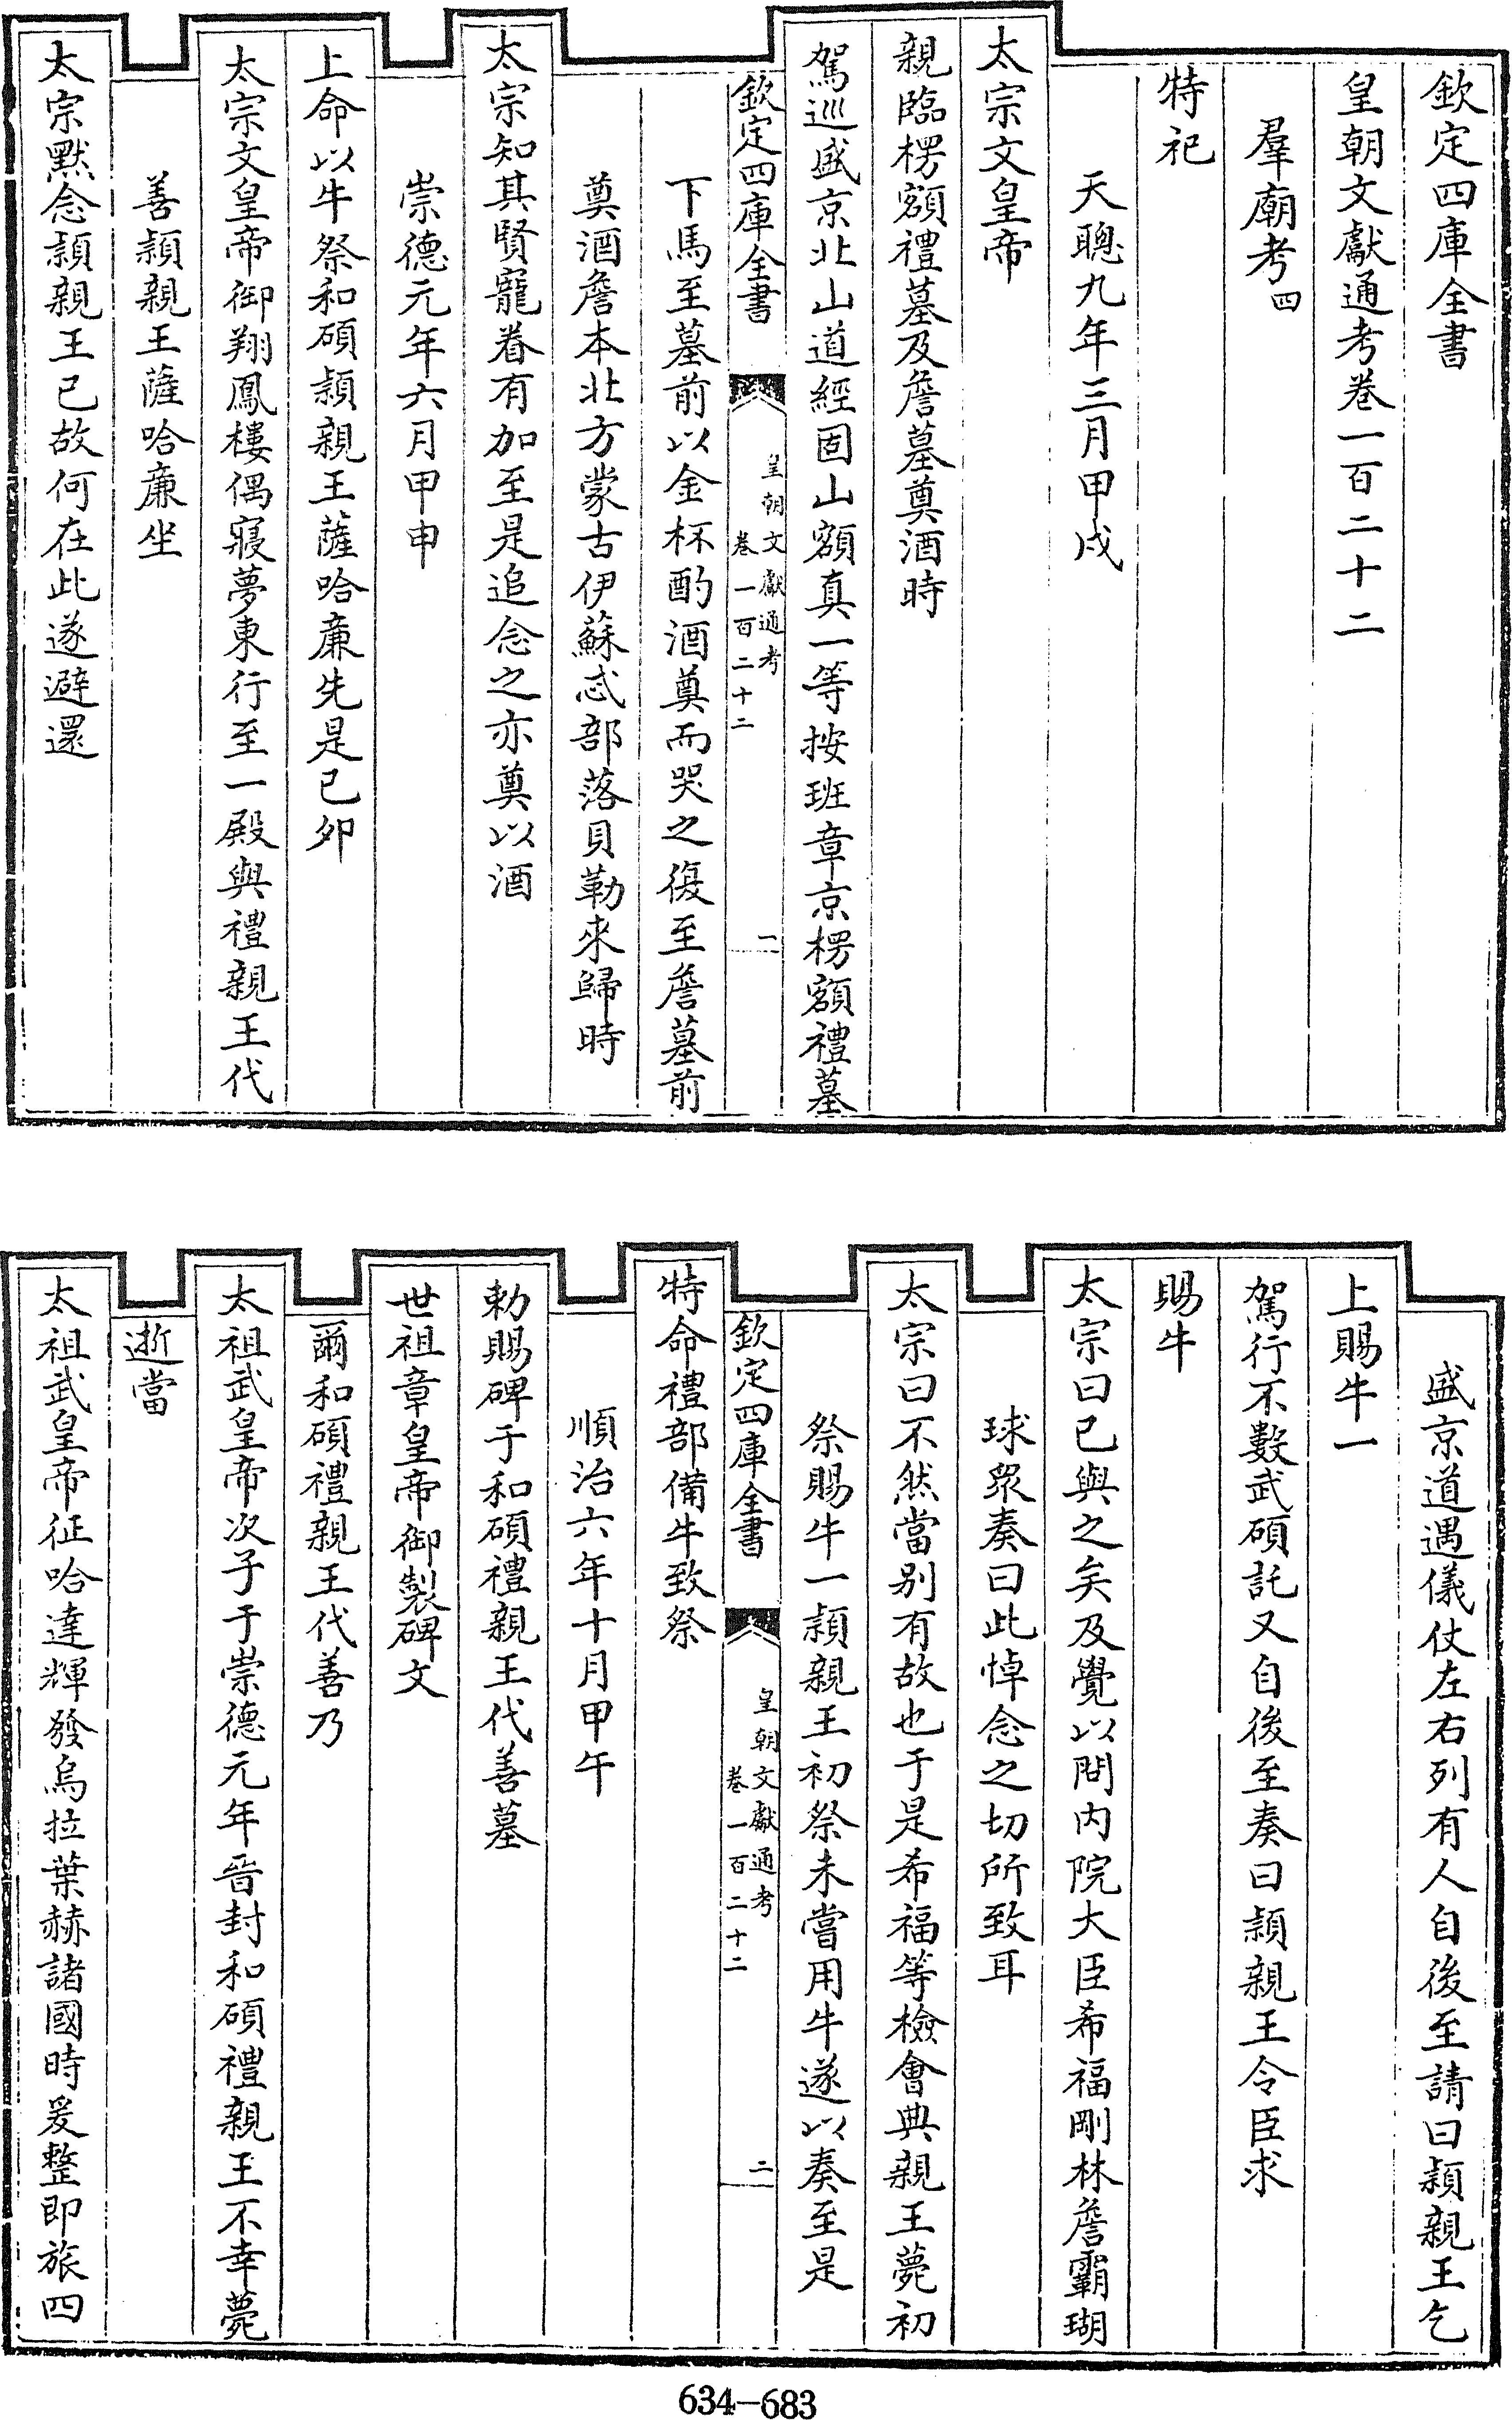 欽定四庫全書
皇朝文獻通考卷一百二十二
羣廟考四
特祀
天聰九年三月甲戌
太宗文皇帝
親臨楞額禮墓及詹墓奠酒時
駕巡盛京北山道經固山額真一等按班章京楞額禮墓
欽定四庫全書
皇朝文獻通考
卷一百二十二
一
下馬至墓前以金杯酌酒奠而哭之復至詹墓前
奠酒詹本北方蒙古伊蘇忒部落貝勒來歸時
太宗知其賢寵眷有加至是追念之亦奠以酒
崇德元年六月甲申
上命以牛祭和碩頴親王薩哈廉先是己卯
太宗文皇帝御翔鳳樓偶寢夢東行至一殿與禮親王代
善頴親王薩哈廉坐
太宗默念頴親王已故何在此遂避還
盛京道遇儀仗左右列有人自後至請曰頴親王乞
上賜牛一
駕行不數武碩託又自後至奏曰頴親王令臣求
賜牛
太宗曰已與之矣及覺以問内院大臣希福剛林詹霸瑚
球衆奏曰此悼念之切所致耳
太宗曰不然當别有故也于是希福等檢會典親王薨初
祭賜牛一頴親王初祭未嘗用牛遂以奏至是
欽定四庫全書
皇朝文獻通考
卷一百二十二
二
特命禮部備牛致祭
順治六年十月甲午
勅賜碑于和碩禮親王代善墓
世祖章皇帝御製碑文
爾和碩禮親王代善乃
太祖武皇帝次子于崇德元年晉封和碩禮親王不幸薨
逝當
太祖武皇帝征哈達輝發烏拉葉赫諸國時爰整即旅四
634-683